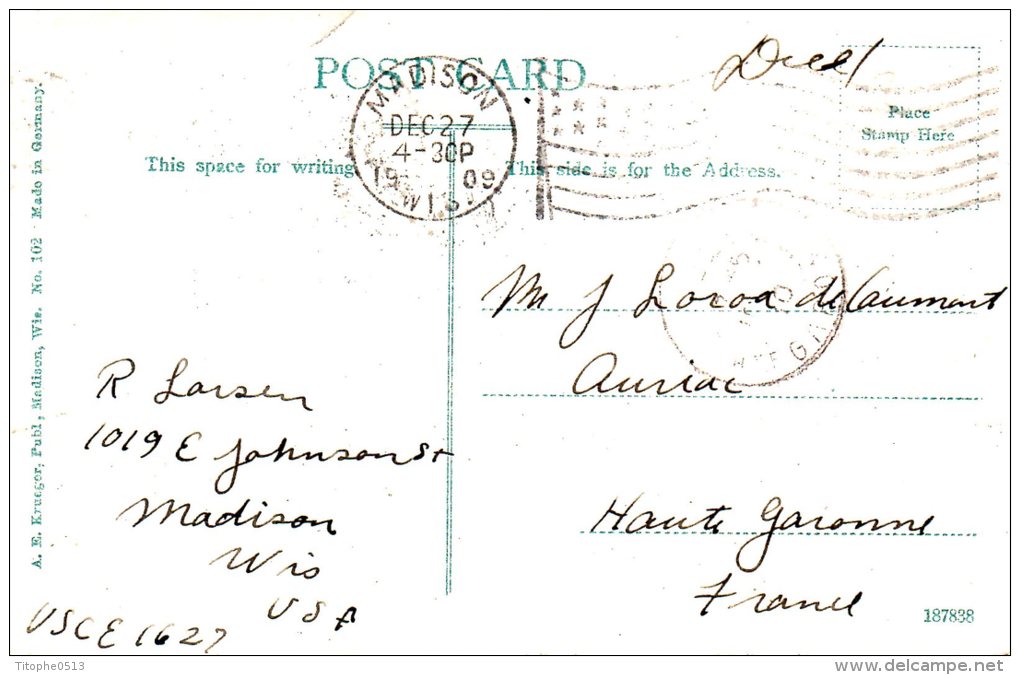 POST CARD
MADISON
DEC 27
4-30P
1909
WIS.
Place
Stamp Here
This space for writing
This side is for the Address.
A. E. Krueger, Publ, Madison, Wis. No. 102 - Made in Germany.
M J Loroa de Caumont
Auriac
Haute Garonne
France
R Larsen
1019 E Johnson St
Madison
Wis
USA
USCE 1627
187838
Titophe0513
www.delcampe.net